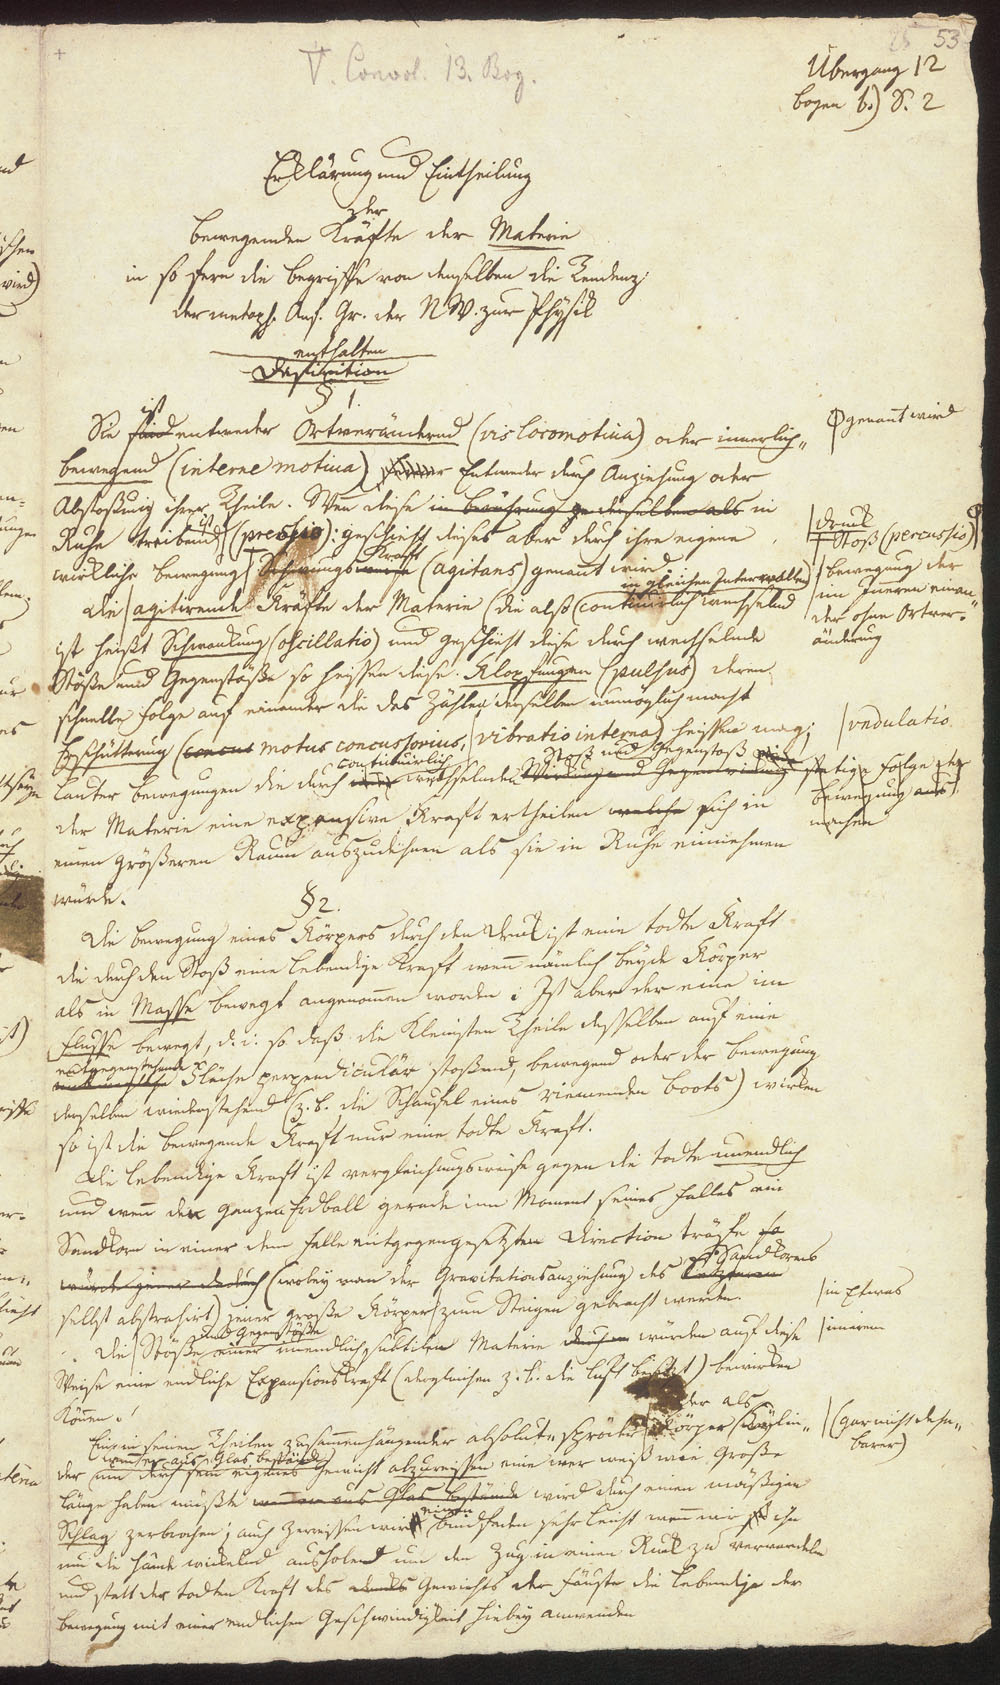 53
V. Convol. 13. Bog.
Übergang 12
bogen b.) S. 2
Erklärung und Eintheilung
der
bewegenden Kräfte der Materie
in so fern die Begriffe von denselben die Tendenz
der metaph. Anf. Gr. der N W. zur Physik
enthalten
Definition
§ 1.
Sie ist entweder Ortverändernd (vis locomotiva) oder innerlich-
genant wird
bewegend (interne motiva) Entweder durch Anziehung oder
Abstoßung ihrer Theile. Wenn diese in Berührung derselben als in
Ruhe treibend ist (pressio): geschieht dieses aber durch ihre eigene
druck
Stoß (percussio)
wirkliche Bewegung Kraft (agitans) genant wird.
bewegung der
im Inneren einan-
der ohne Ortver-
änderung
in gleichen Intervallen
Die agitirende Kräfte der Materie (die als continuirlich wechselnd
ist heißt Schwankung (oscillatio) und geschieht diese durch wechselnde
Stöße und Gegenstöße so heissen diese Klopfungen (pulsus) deren
schnelle Folge auf einander die das Zählen derselben unmöglich macht
Erschütterung (concus motus concussorius, vibratio interna) heissen mag;
undulatio
continuirlich Stoß und Gegenstoß
lauter bewegungen die durch wechselnde Wirkung und Gegenwirkung
stetige Folge der
bewegung aus
machen
der Materie eine expansive Kraft ertheilen welche sich in
einen größeren Raum auszudehnen als sie in Ruhe einnehmen
würde.
§ 2.
Die Bewegung eines Körpers durch den Druck ist eine todte Kraft
die durch den Stoß eine lebendige Kraft wenn nämlich beyde Körper
als in Masse bewegt angenommen worden; Ist aber der eine im
Flusse bewegt, d. i. so daß die Kleinsten Theile desselben auf eine
entgegenstehende Fläche perpendiculär stoßend, bewegend oder der bewegung
derselben wiederstehend (z. B. die Schaufel eines riemenden boots) wirken
so ist die bewegende Kraft nur eine todte Kraft.
Die lebendige Kraft ist vergleichungsweise gegen die todte unendlich
und wenn der ganzen Erdball gerade im Moment seines Falles ein
Sandkorn in einer dem Falle entgegengesetzten Direction träfe so
würde jener dadurch (wobey man der Gravitationsanziehung des Sandkorns
in Etwas
selbst abstrahirt) jener große Körper zum Steigen gebracht werden.
und Gegenstöße
Die Stöße einer unendlich subtilen Materie würden auf diese
innern
Weise eine endliche Expansionskraft (dergleichen z. B. die Luft besitzt) bewirken
können.
Ein in seinen Theilen zusammenhängender absolut-spröder Körper der als Cylin-
(gar nicht dehn-
barer)
wenn er aus Glas bestände
der um durch sein eigenes Gewicht abzureissen eine wer weiß wie Große
Länge haben müßte wenn er aus Glas bestünde wird durch einen mäßigen
Schlag zerbrochen; auch zerreissen wir einen bindfaden sehr leicht wenn wir ihn
um die Hände wickelnd ausholend um den Zug in einen Ruck zu verwandeln
und statt der todten Kraft des Gewichts der Fäuste die lebendige der
bewegung mit einer endlichen Geschwindigkeit hiebey anwenden